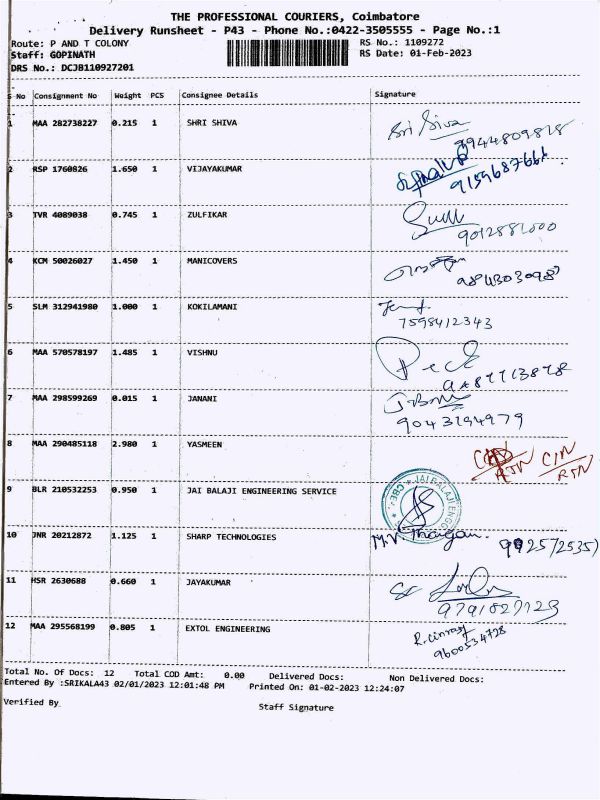 THE PROFESSIONAL COURIERS, Coimbatore
Delivery Runsheet - P43 - Phone No.:0422-3505555 - Page No.:1
Route: P AND T COLONY RS No.: 1109272
Staff: GOPINATH RS Date: 01-Feb-2023
DRS No.: DCJB110927201
S No Consignment No Weight PCS Consignee Details Signature
1 MAA 282738227 0.215 1 SHRI SHIVA Sri Siva
2 RSP 1760826 1.650 1 VIJAYAKUMAR
9159687666
3 TVR 4089038 0.745 1 ZULFIKAR
4 KCM 50026027 1.450 1 MANICOVERS
5 SLM 312941980 1.000 1 KOKILAMANI
7598412343
6 MAA 570578197 1.485 1 VISHNU
7 MAA 298599269 0.015 1 JANANI
9043194979
8 MAA 290485118 2.980 1 YASMEEN
C/N
RTN
9 BLR 210532253 0.950 1 JAI BALAJI ENGINEERING SERVICE
10 JNR 20212872 1.125 1 SHARP TECHNOLOGIES
11 HSR 2630688 0.660 1 JAYAKUMAR
9791027123
12 MAA 295568199 0.805 1 EXTOL ENGINEERING
9600534728
Total No. Of Docs: 12 Total COD Amt: 0.00 Delivered Docs: Non Delivered Docs:
Entered By :SRIKALA43 02/01/2023 12:01:48 PM Printed On: 01-02-2023 12:24:07
Verified By Staff Signature